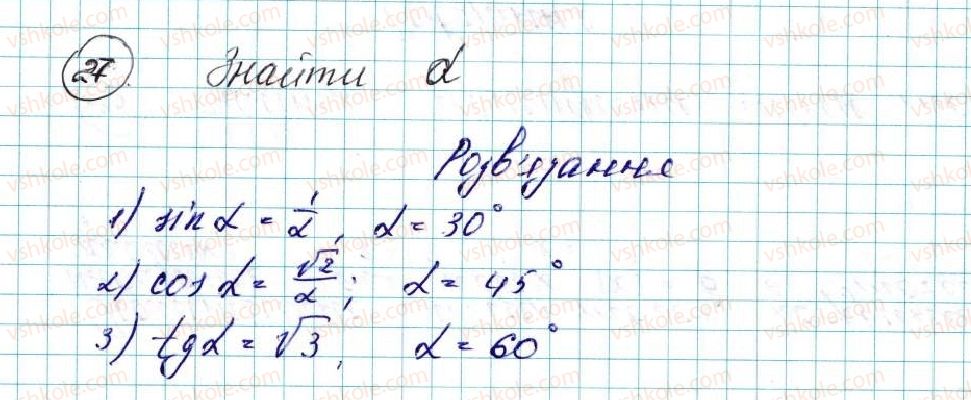 27 Знайти α
Розв'язання
1) sin α = 1/2, α = 30°
2) cos α = √2/2; α = 45°
3) tg α = √3; α = 60°
vshkole.com